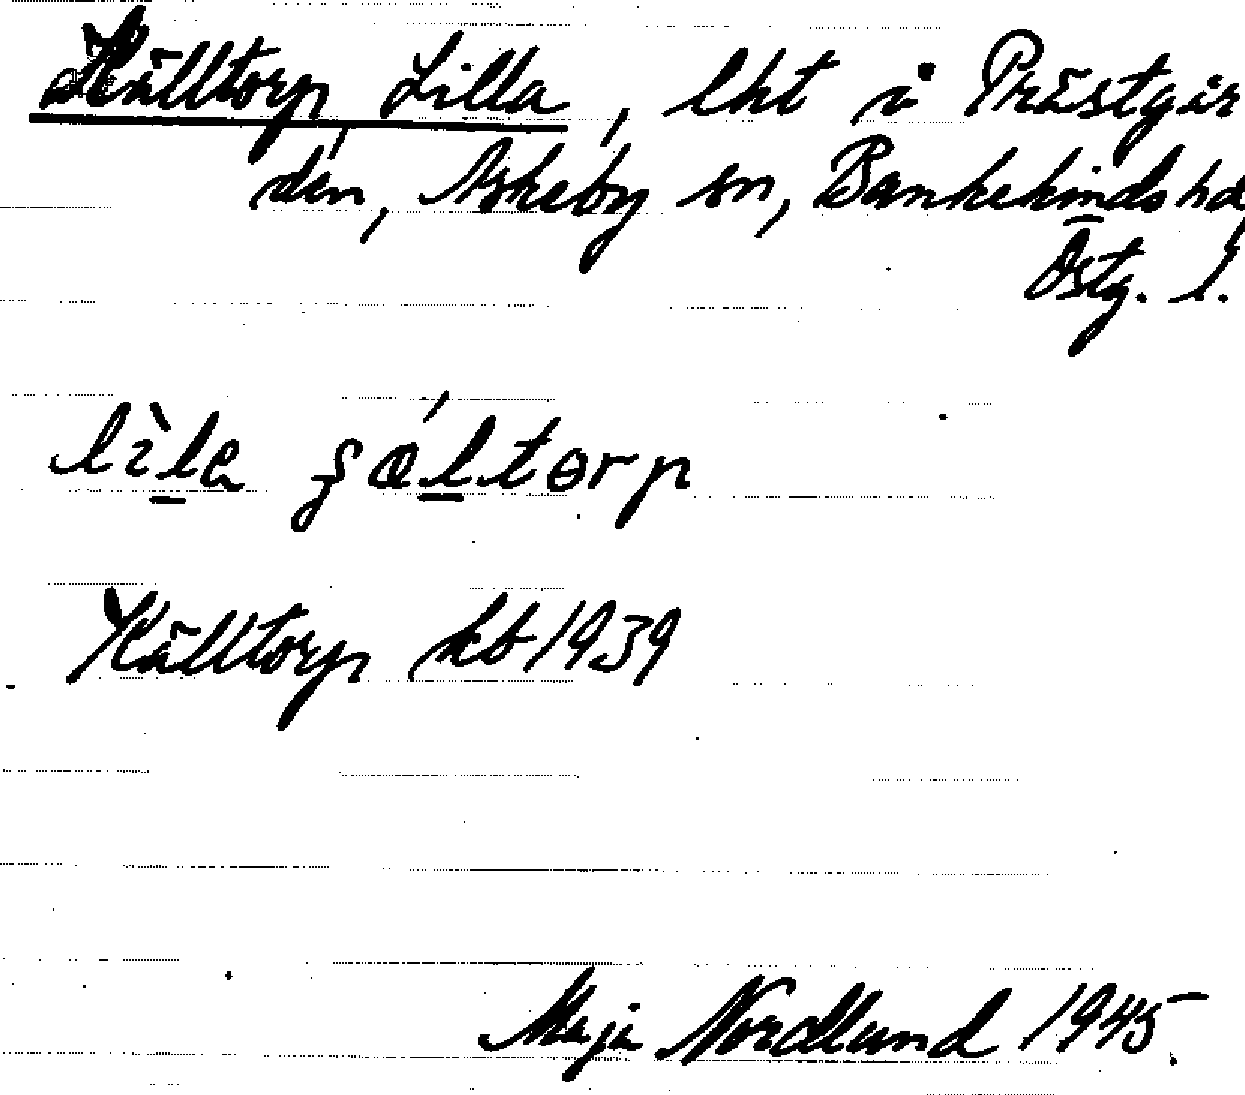 Källtorp Lilla, lht i Prästgår
den, Askeby sn, Bankekinds hd,
Östg. l.
lìla ʂǽltɵrp
Källtorp kb 1939
Maja Nordlund 1945.